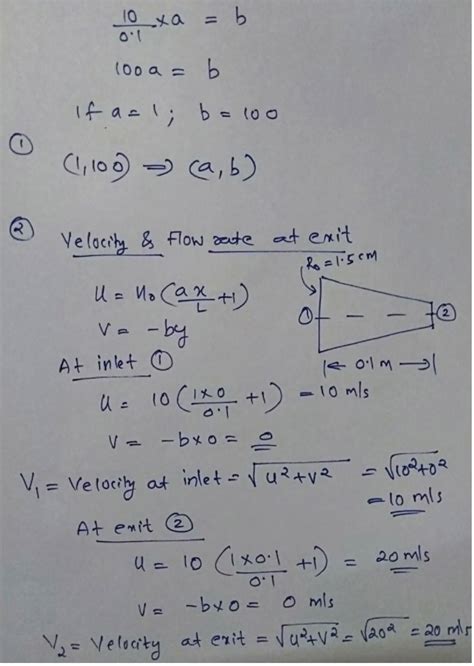 10/0.1 × a = b
100 a = b
if a = 1 ; b = 100
① (1,100) ⇒ (a, b)
② Velocity & Flow rate at exit
R₀ = 1.5 cm
u = u₀ (ax/L + 1)
① ②
V = -by
|← 0.1 m →|
At inlet ①
u = 10 (1×0/0.1 + 1) = 10 m/s
V = -b×0 = 0
V₁ = Velocity at inlet = √(u²+V²) = √(10²+0²)
= 10 m/s
At exit ②
u = 10 (1×0.1/0.1 + 1) = 20 m/s
V = -b×0 = 0 m/s
V₂ = Velocity at exit = √(u²+V²) = √20² = 20 m/s